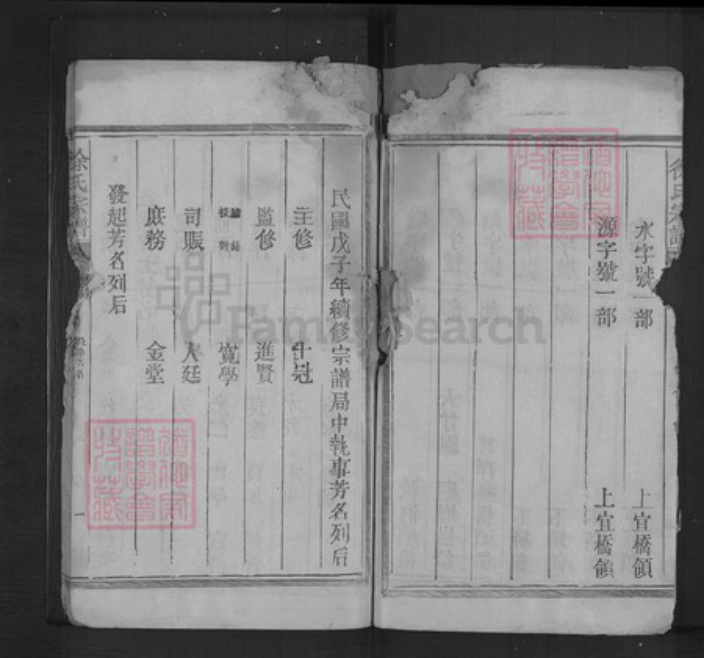 水字號一部 上宜橋領
源字號一部 上宜橋領
民國戊子年續修宗譜局中執事芳名列后
主修
監修 進賢
寬學
司賬 廷
庶務 金堂
發起芳名列后
徐氏宗譜
一
FamilySearch